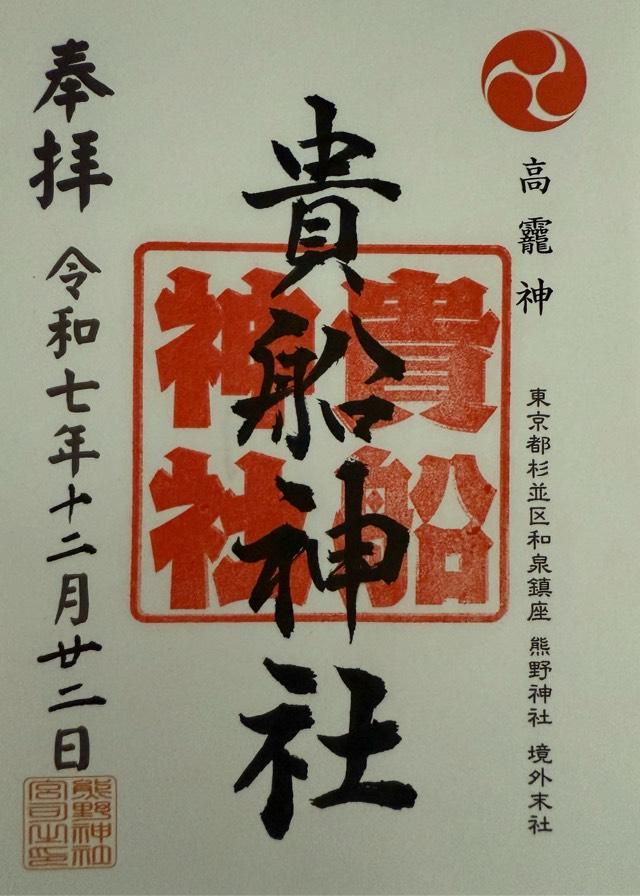 高龗神
東京都杉並区和泉鎮座 熊野神社 境外末社
貴船神社
貴船
神社
奉拝
令和七年十二月廿二日
熊野神社
宮司之印